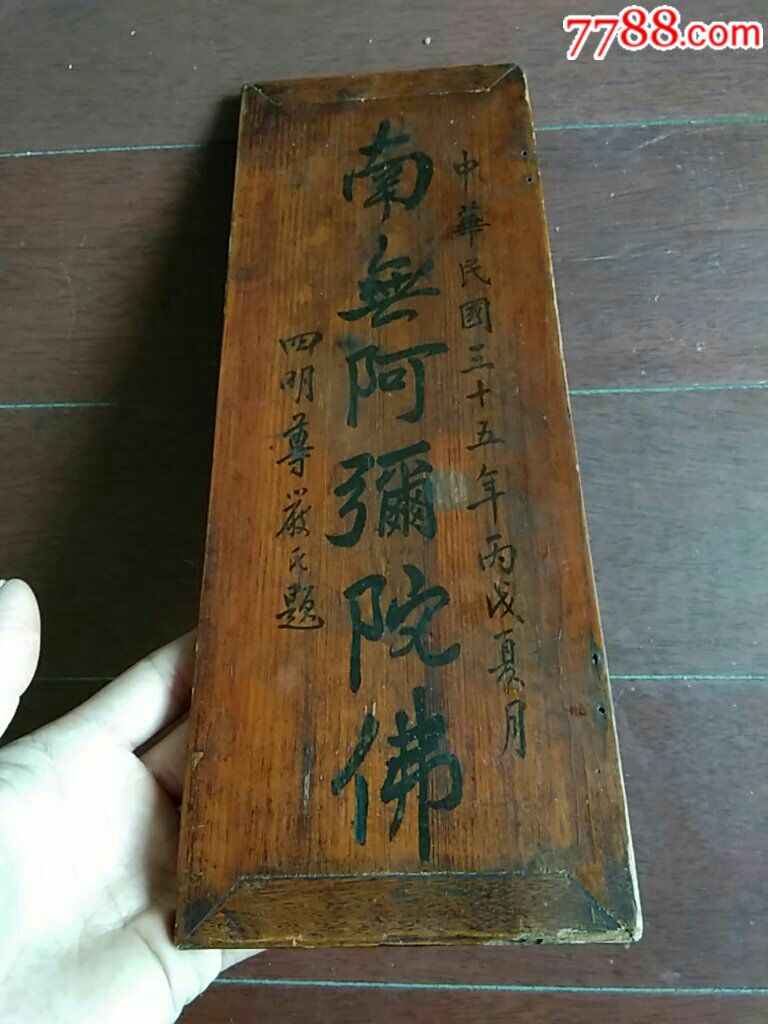 7788.com
中華民國三十五年丙戌夏月
南無阿彌陀佛
四明尊嚴氏題